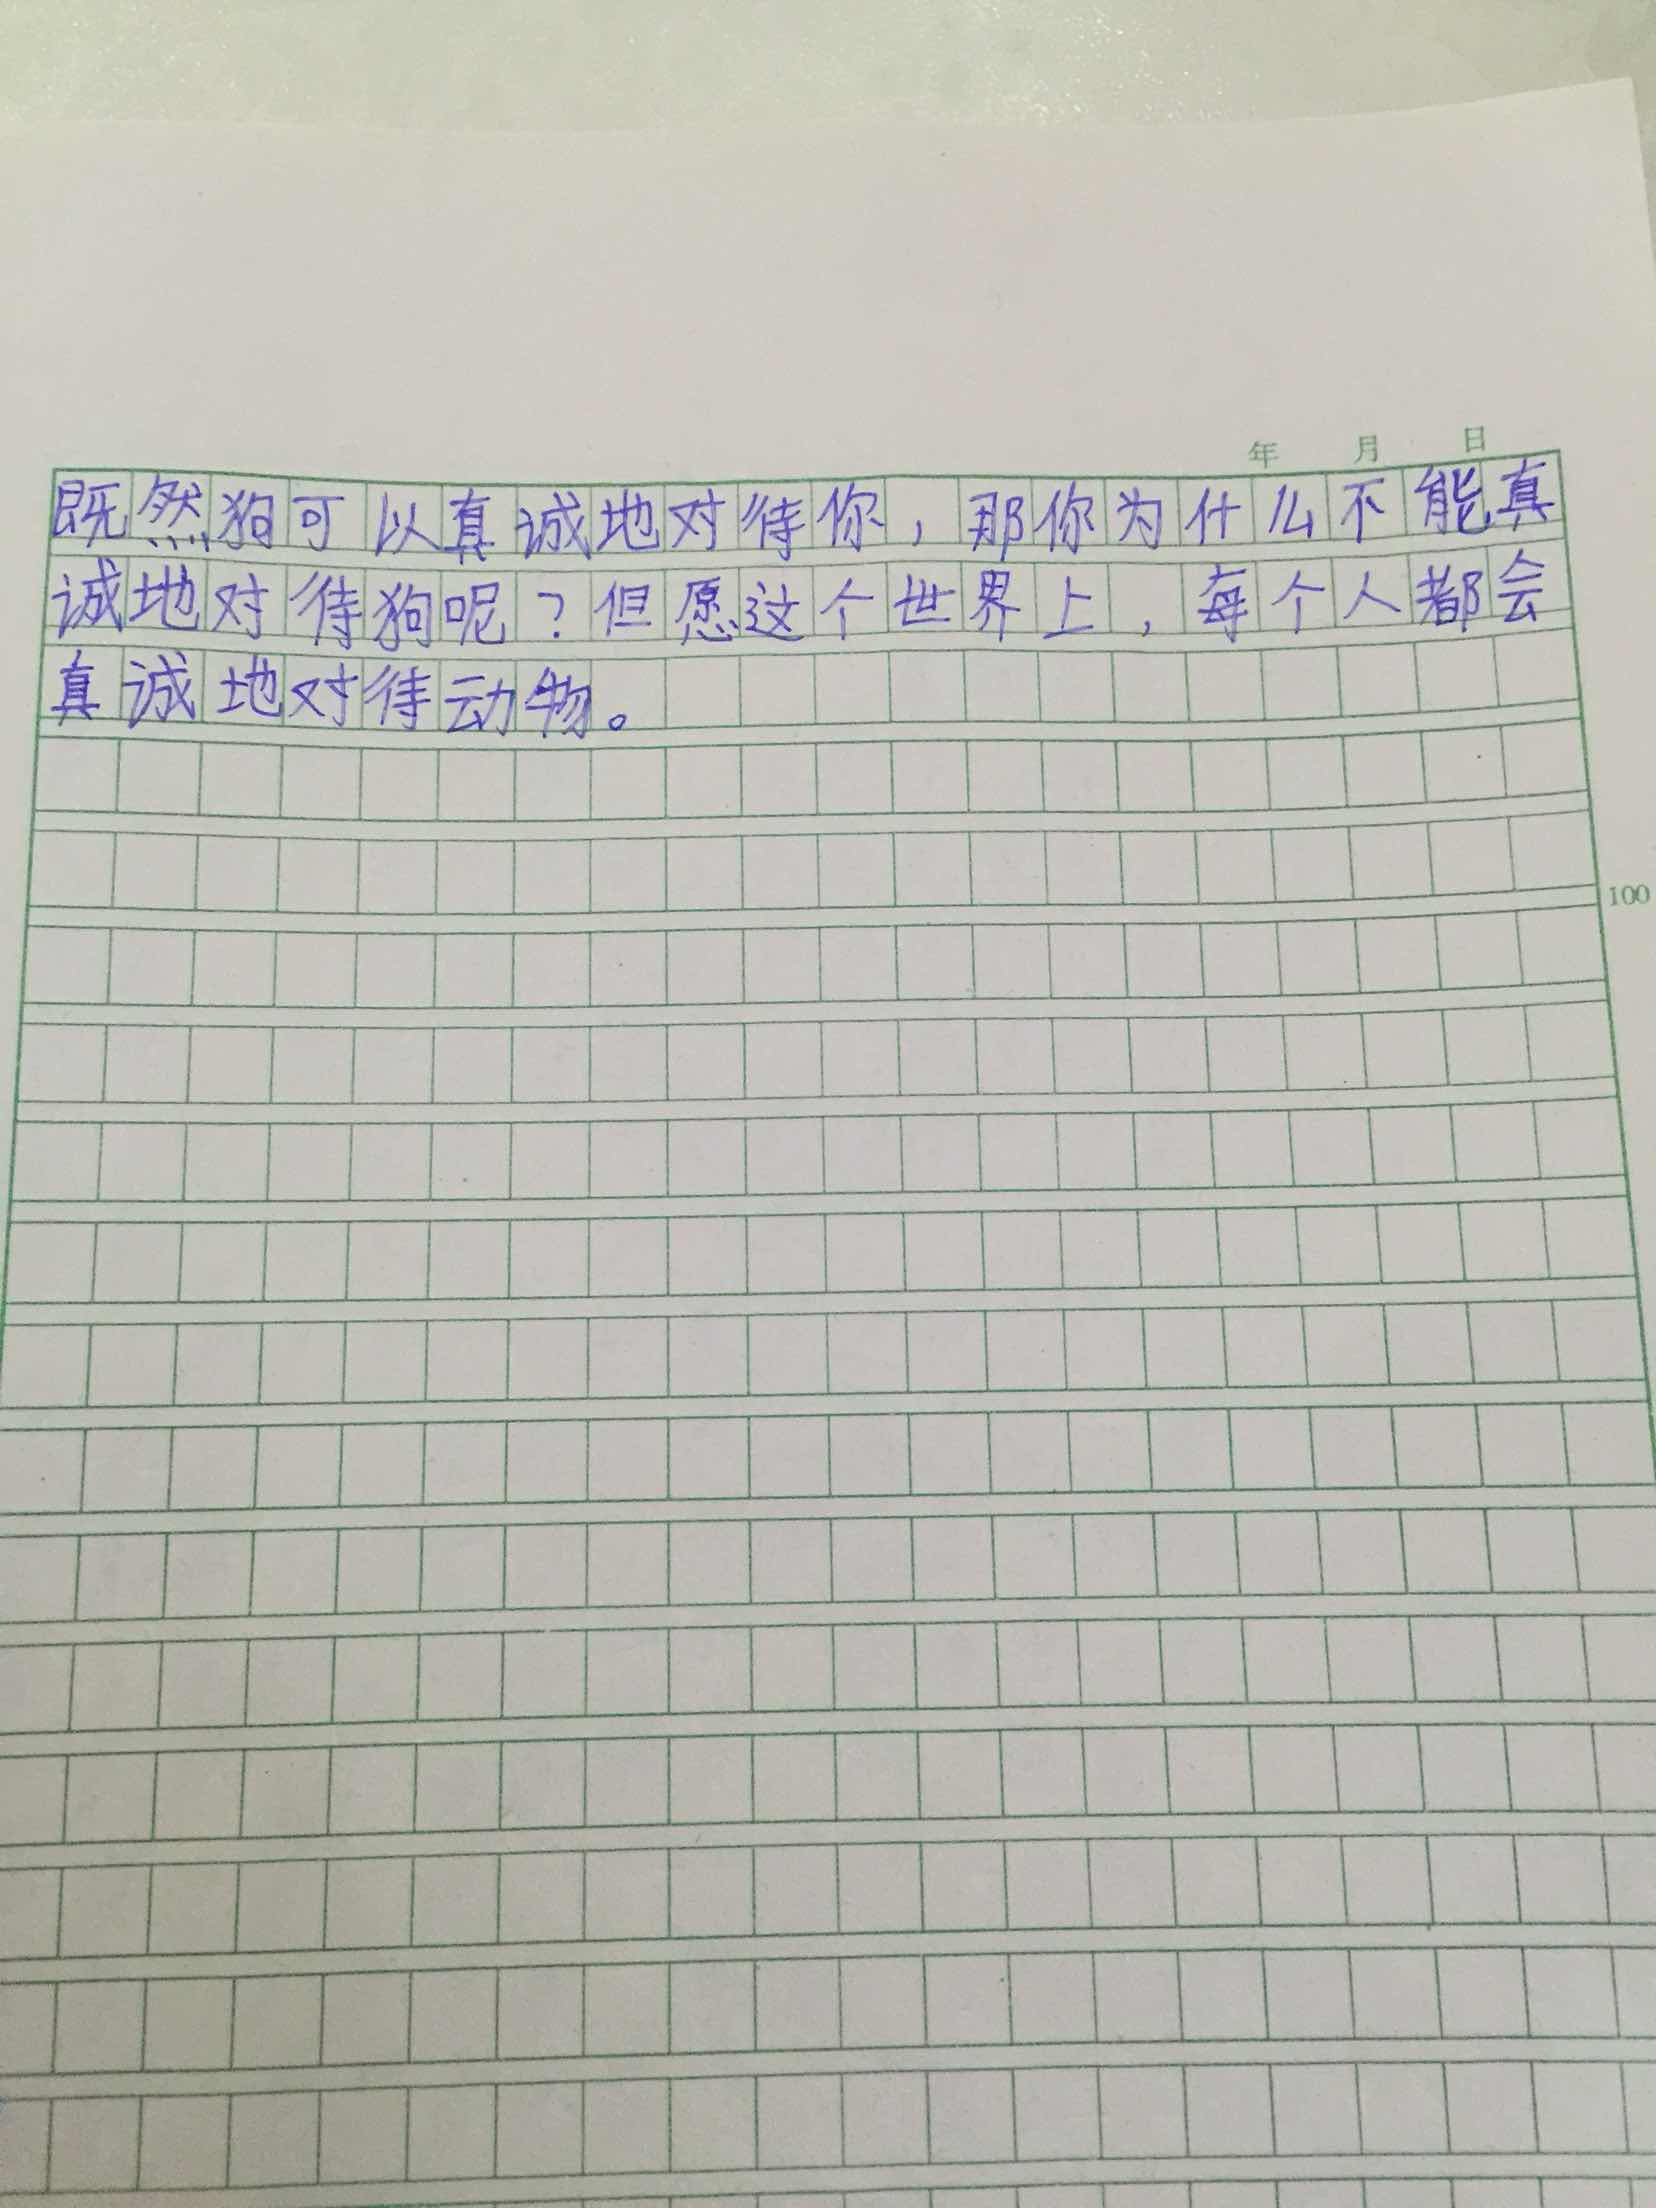 年 月 日
既然狗可以真诚地对待你，那你为什么不能真
诚地对待狗呢？但愿这个世界上，每个人都会
真诚地对待动物。
100